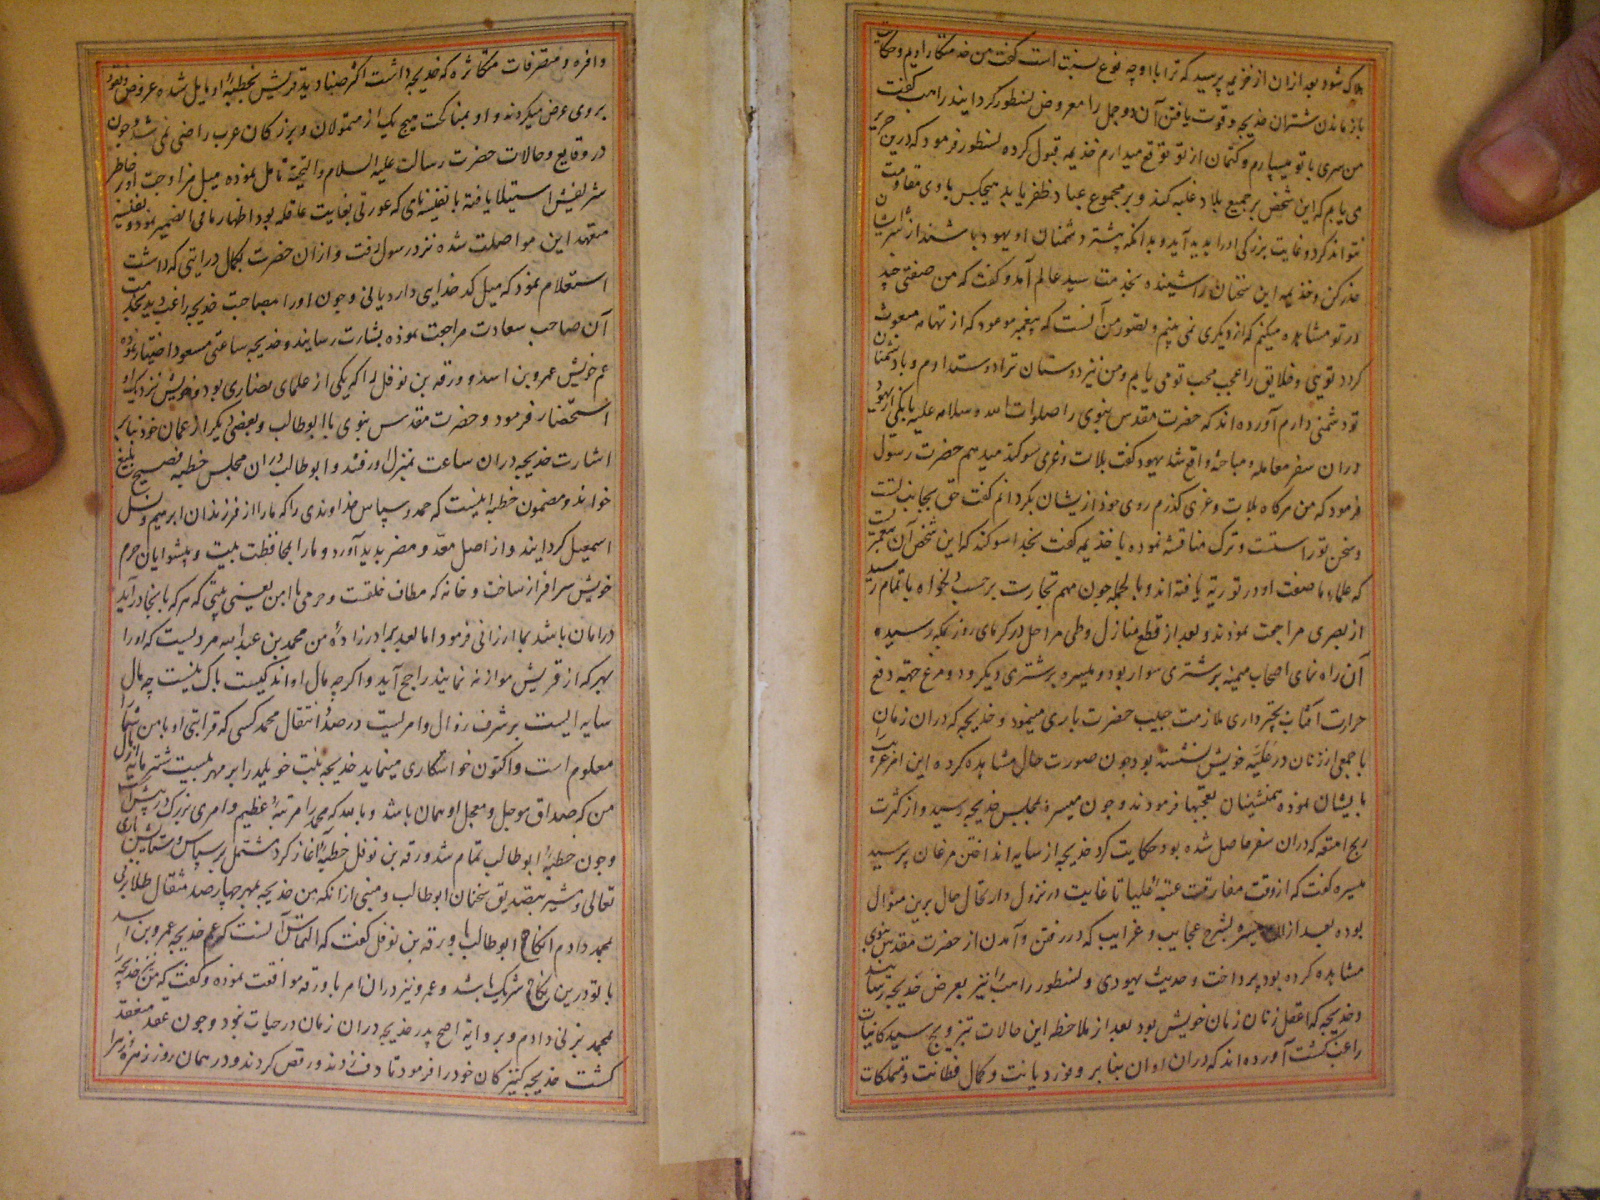 هلاک شود بعد ازان از خزیمه پرسید که ترا با او چه نوع نسبت است گفت من خدمتکار اویم و حکایت
باز ماندن شتران خدیجه و قوت یافتن آن دو جمل را معروض نسطور گردانید راهب گفت
من سری با تو میسپارم و کتمان از تو توقع میدارم خذیمه قبول کرده نسطور فرمود که درین
می یابم که این شخص بر جمیع بلاد غلبه کند و بر مجموع عباد ظفر یابد هیچکس با وی مقاومت
نتواند کرد و غایت بزرگی او را پدید آید و بدانکه بیشتر دشمنان او یهود باشند از شر ایشان
حذر کن و خذیمه این سخنان را شنیده بخدمت سید عالم آمد و گفت که من صفتی چند
در تو مشاهده میکنم که از دیگری نمی بینم و تصور من آنست که پیغمبر موعود که از تهامه مبعوث
گردد توئی و خلایق را عجب محب تو می یابم و من نیز دوستان ترا دوست دارم و با دشمنان
تو دشمنی دارم آورده اند که حضرت مقدس نبوی را صلوات الله و سلامه علیه با یکی از یهود
دران سفر معامله و مباحثه واقع شد یهود گفت بلات و عزی سوگند میدهم حضرت رسول
فرمود که من هر گاه بلات و عزی گذرم روی خود از ایشان بگردانم گفت حق بجانب تست
و سخن تو راست و ترک مناقشه نموده با خذیمه گفت بخدا سوگند که این شخص آن پیغمبر است
که علماء ما صفت او در توریة یافته اند و بالجمله چون مهم تجارت بر حسب دلخواه باتمام رسید
از بصری مراجعت نمودند و بعد از قطع منازل و طی مراحل در گرمای روز بمکه رسیده
آن راه نمای اصحاب میمنه بر شتری سوار بود و میسره بر شتری دیگر و دو مرغ جهة دفع
حرارت آفتاب بچترداری ملازمت جیب حضرت باری مینمود و خدیجه که دران زمان
با جمعی از زنان در علیّه خویش نشسته بود چون صورت حال مشاهده کرده این امر غریب را
بایشان نموده همنشینان تعجبها فرمودند و چون میسره بمجلس خدیجه رسید و از کثرت
ربح امتعه که دران سفر حاصل شده بود حکایت کرد خدیجه از سایه انداختن مرغان پرسید
میسره گفت که از وقت مفارقت عتبه علیا تا غایت در نزول و ارتحال حال برین منوال
بوده بعد ازان میسره بشرح عجایب و غرایب که در رفتن و آمدن از حضرت مقدس نبوی
مشاهده کرده بود پرداخت و حدیث یهودی و نسطور راهب را نیز بعرض خدیجه رسانید
و خدیجه که اعقل زنان زمان خویش بود بعد از ملاحظه این حالات بتزویج سید کاینات
راغب گشت آورده اند که دران اوان بنا بر وفور دیانت و کمال فطانت و تملکات
وافره و متصرفات متکاثره که خدیجه داشت اکثر صنادید قریش بخطبه او مایل شده عروض و نقود
بر وی عرض میکردند و او بمناکحت هیچ یک از متمولان و بزرگان عرب راضی نمی شد و چون
در وقایع و حالات حضرت رسالت علیه السلام والتحیّة تأمل نموده میل مزاوجت او بر خاطر
شریفش استیلا یافته با نفیسه نامی که عورتی بغایت عاقله بود اظهار ما فی الضمیر نمود و نفیسه
متعهد این مواصلت شده نزد رسول رفت و از آن حضرت بکمال درایتی که داشت
استعلام نمود که میل کدخدایی دارد یا نی و چون او را بمصاحبت خدیجه راغب دید بخدمت
آن صاحب سعادت مراجعت نموده بشارت رسانید و خدیجه ساعتی مسعود اختیار نموده
عم خویش عمرو بن اسد و ورقه بن نوفل را که یکی از علمای نصاری بود و خویش نزدیک او
استحضار فرمود و حضرت مقدس نبوی با ابوطالب و بعضی دیگر از عمان خود بنا بر
اشارت خدیجه دران ساعت بمنزل او رفتند و ابوطالب دران مجلس خطبه فصیح بلیغ
خواند و مضمون خطبه اینست که حمد و سپاس خداوندی را که ما را از فرزندان ابرهیم و نسل
اسمعیل گردانید و از اصل معدّ و مضر پدید آورد و ما را بمحافظت بیت و پیشوایان حرم
خویش سرافراز ساخت و خانه که مطاف خلقست و حرمی با امن یعنی بیتی که هر که بانجا درآید
در امان باشد بما ارزانی فرمود اما بعد برادرزاده من محمد بن عبدالله مردیست که او را
بهر که از قریش موازنه نمایند راجح آید و اگرچه مال او اندکیست باک نیست چه مال
سایه ایست بر شرف زوال و امریست در صدد انتقال محمد کسی که قرابتی او با من شما را
معلوم است و اکنون خواستگاری مینماید خدیجه بنت خویلد را بر مهر بیست شتر مایه از مال
من که صداق موجل و معجل او همان باشد و بالله که محمد را مرتبه عظیم و امری بزرگ در پیش است
و چون خطبه ابوطالب تمام شد ورقه بن نوفل خطبه آغاز کرد مشتمل بر سپاس و ستایش باری
تعالی و مشیر بتصدیق سخنان ابوطالب و مبنی از آنکه من خدیجه بمهر چهار صد مثقال طلا بزنی
بمحمد دادم انکاح ابوطالب با ورقه بن نوفل گفت که التماس آنست که عم خدیجه عمرو بن اسد
با تو درین نکاح شریک باشد و عمرو نیز دران امر با ورقه موافقت نموده و گفت که من خدیجه را
بمحمد بزنی دادم و بروایة اصح پدر خدیجه دران زمان در حیات نبود و چون عقد منعقد
گشت خدیجه کنیزکان خود را فرمود تا دف زدند و رقص کردند و در همان روز زهره زهرا